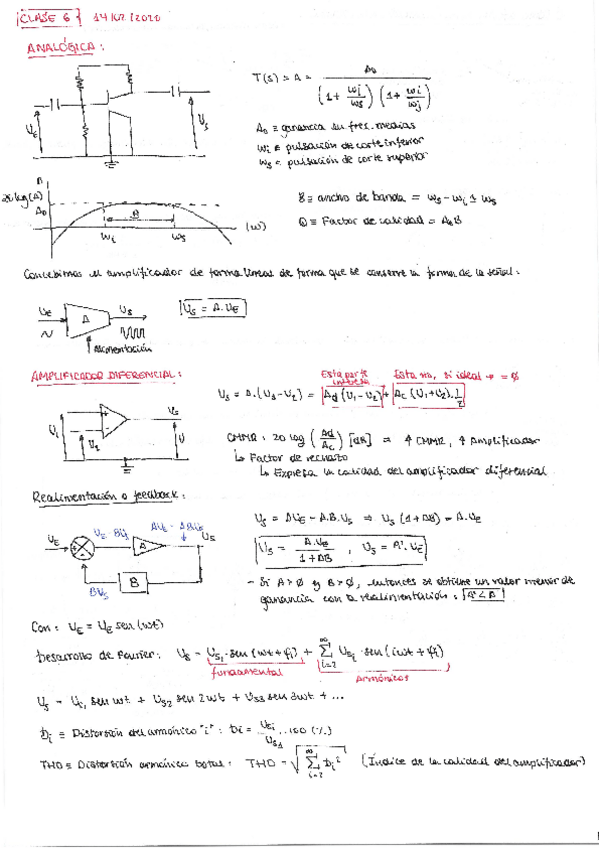 CLASE 6 14/02/2020
ANALÓGICA:
T(s) = A = A₀ / (1 + wi/ws) (1 + wi/wj)
U_E
U_s
A₀ ≡ ganancia en frec. medias
wi ≡ pulsación de corte inferior
ws = pulsación de corte superior
20 log(A)
A₀
B
wi
ws
(w)
B ≡ ancho de banda = ws - wi ≃ ws
Q ≡ Factor de calidad = A₀B
Concebimos el amplificador de forma lineal de forma que se conserve la forma de la señal:
U_E
A
U_s
Alimentación
U_s = A.U_E
AMPLIFICADOR DIFERENCIAL:
Esta parte interesa
Esta no, si ideal → = ∅
U_s = A.(U_1-U_2) = Ad(U_1-U_2) + Ac(U_1+U_2).1/2
U_1
U_2
U_s
CMMR: 20 log (Ad/Ac) [dB] ⇒ ↑ CMMR, ↑ Amplificador
↳ Factor de rechazo
↳ Expresa la calidad del amplificador diferencial
Realimentación o feedback:
U_E
U_E - BU_s
A
AU_E - ABU_s
U_s
B
BU_s
U_s = AU_E - A.B.U_s ⇒ U_s (1+AB) = A.U_E
U_s = A.U_E / 1+AB , U_s = A'.U_E
- Si A > ∅ y B > ∅, entonces se obtiene un valor menor de
ganancia con la realimentación: A' < A
Con: U_E = U_E sen(wt)
Desarrollo de Fourier: U_s = U_s1.sen(wt+φi) + ∞ Σ i=2 U_si.sen(iwt+φi)
fundamental
armónicos
U_s = U_s1 sen wt + U_s2 sen 2wt + U_s3 sen 3wt + ...
Di ≡ Distorsión del armónico "i": Di = U_si / U_s1 .100 (%)
THD ≡ Distorsión armónica total: THD = √ ∞ Σ i=2 Di² (Índice de la calidad del amplificador)